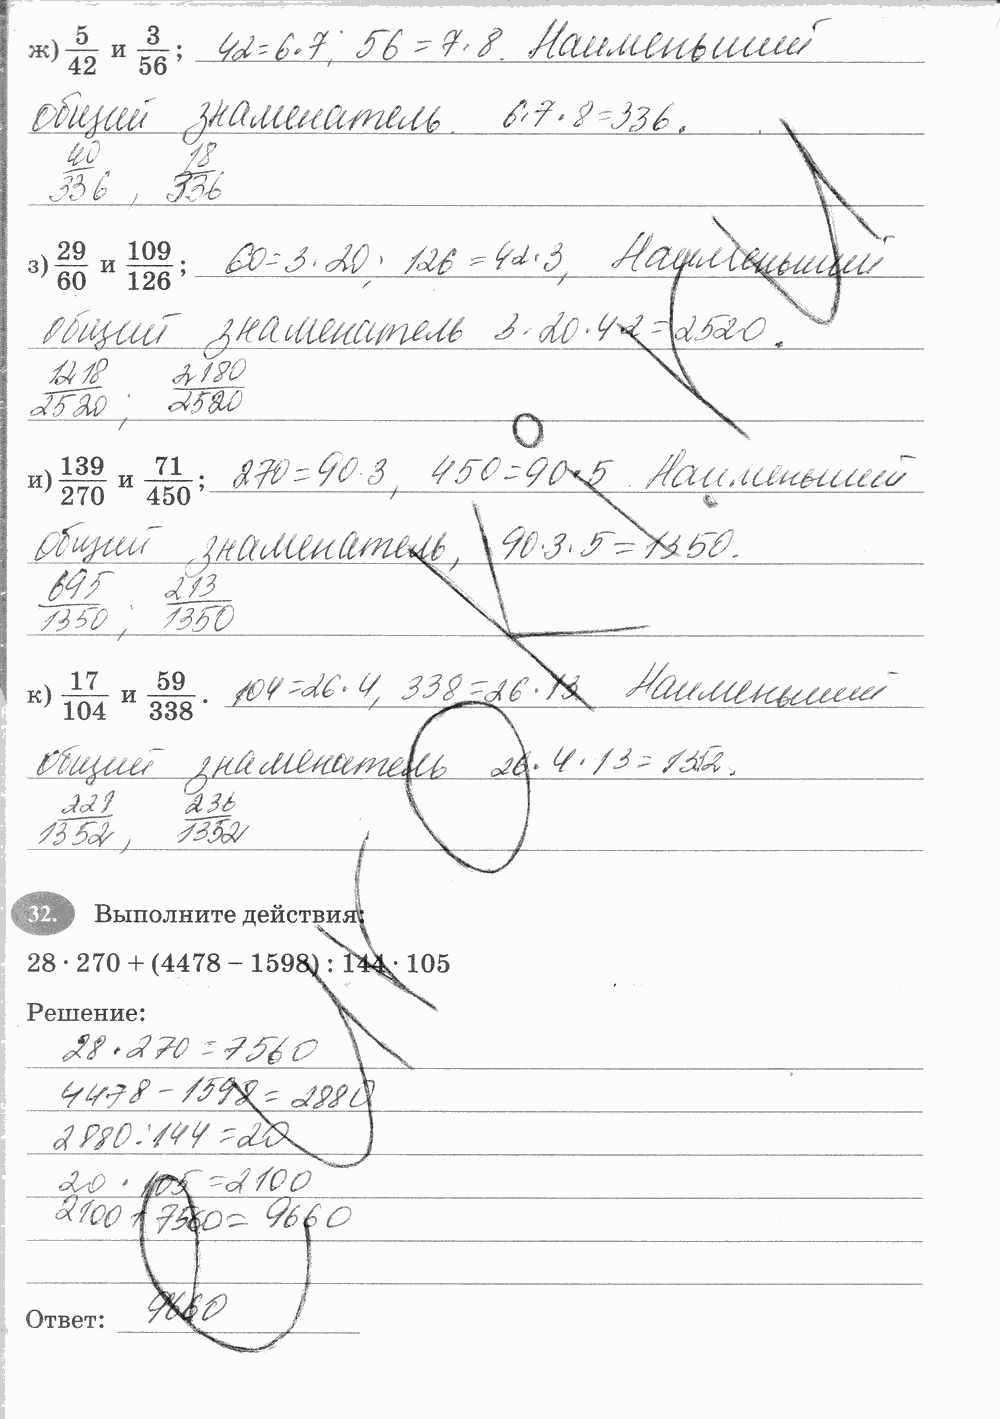 ж) 5/42 и 3/56; 42=6·7; 56=7·8. Наименьший
общий знаменатель. 6·7·8=336.
40/336, 18/336
з) 29/60 и 109/126; 60=3·20; 126=42·3, Наименьший
общий знаменатель 3·20·42=2520.
1218/2520; 2180/2520
и) 139/270 и 71/450; 270=90·3, 450=90·5. Наименьший
общий знаменатель, 90·3·5=1350.
695/1350; 213/1350
к) 17/104 и 59/338. 104=26·4, 338=26·13 Наименьший
общий знаменатель 26·4·13=1352.
221/1352, 236/1352
32. Выполните действия:
28 · 270 + (4478 – 1598) : 144 · 105
Решение:
28·270=7560
4478-1598=2880
2880:144=20
20·105=2100
2100+7560=9660
Ответ: 9660